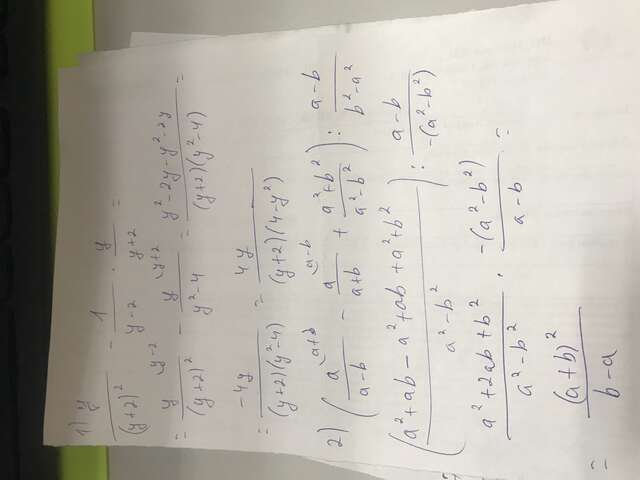 1) y/(y+2)² - 1/(y-2) · y/(y+2) =
= y^(y-2)/(y+2)² - y^(y+2)/(y²-4) = (y²-2y-y²-2y)/((y+2)(y²-4)) =
= -4y/((y+2)(y²-4)) = 4y/((y+2)(4-y²))
2) (a^(a+b)/(a-b) - a^(a-b)/(a+b) + (a²+b²)/(a²-b²)) : (a-b)/(b²-a²)
((a²+ab-a²+ab+a²+b²)/(a²-b²)) : (a-b)/(-(a²-b²))
(a²+2ab+b²)/(a²-b²) · (-(a²-b²))/(a-b) =
= (a+b)²/(b-a)